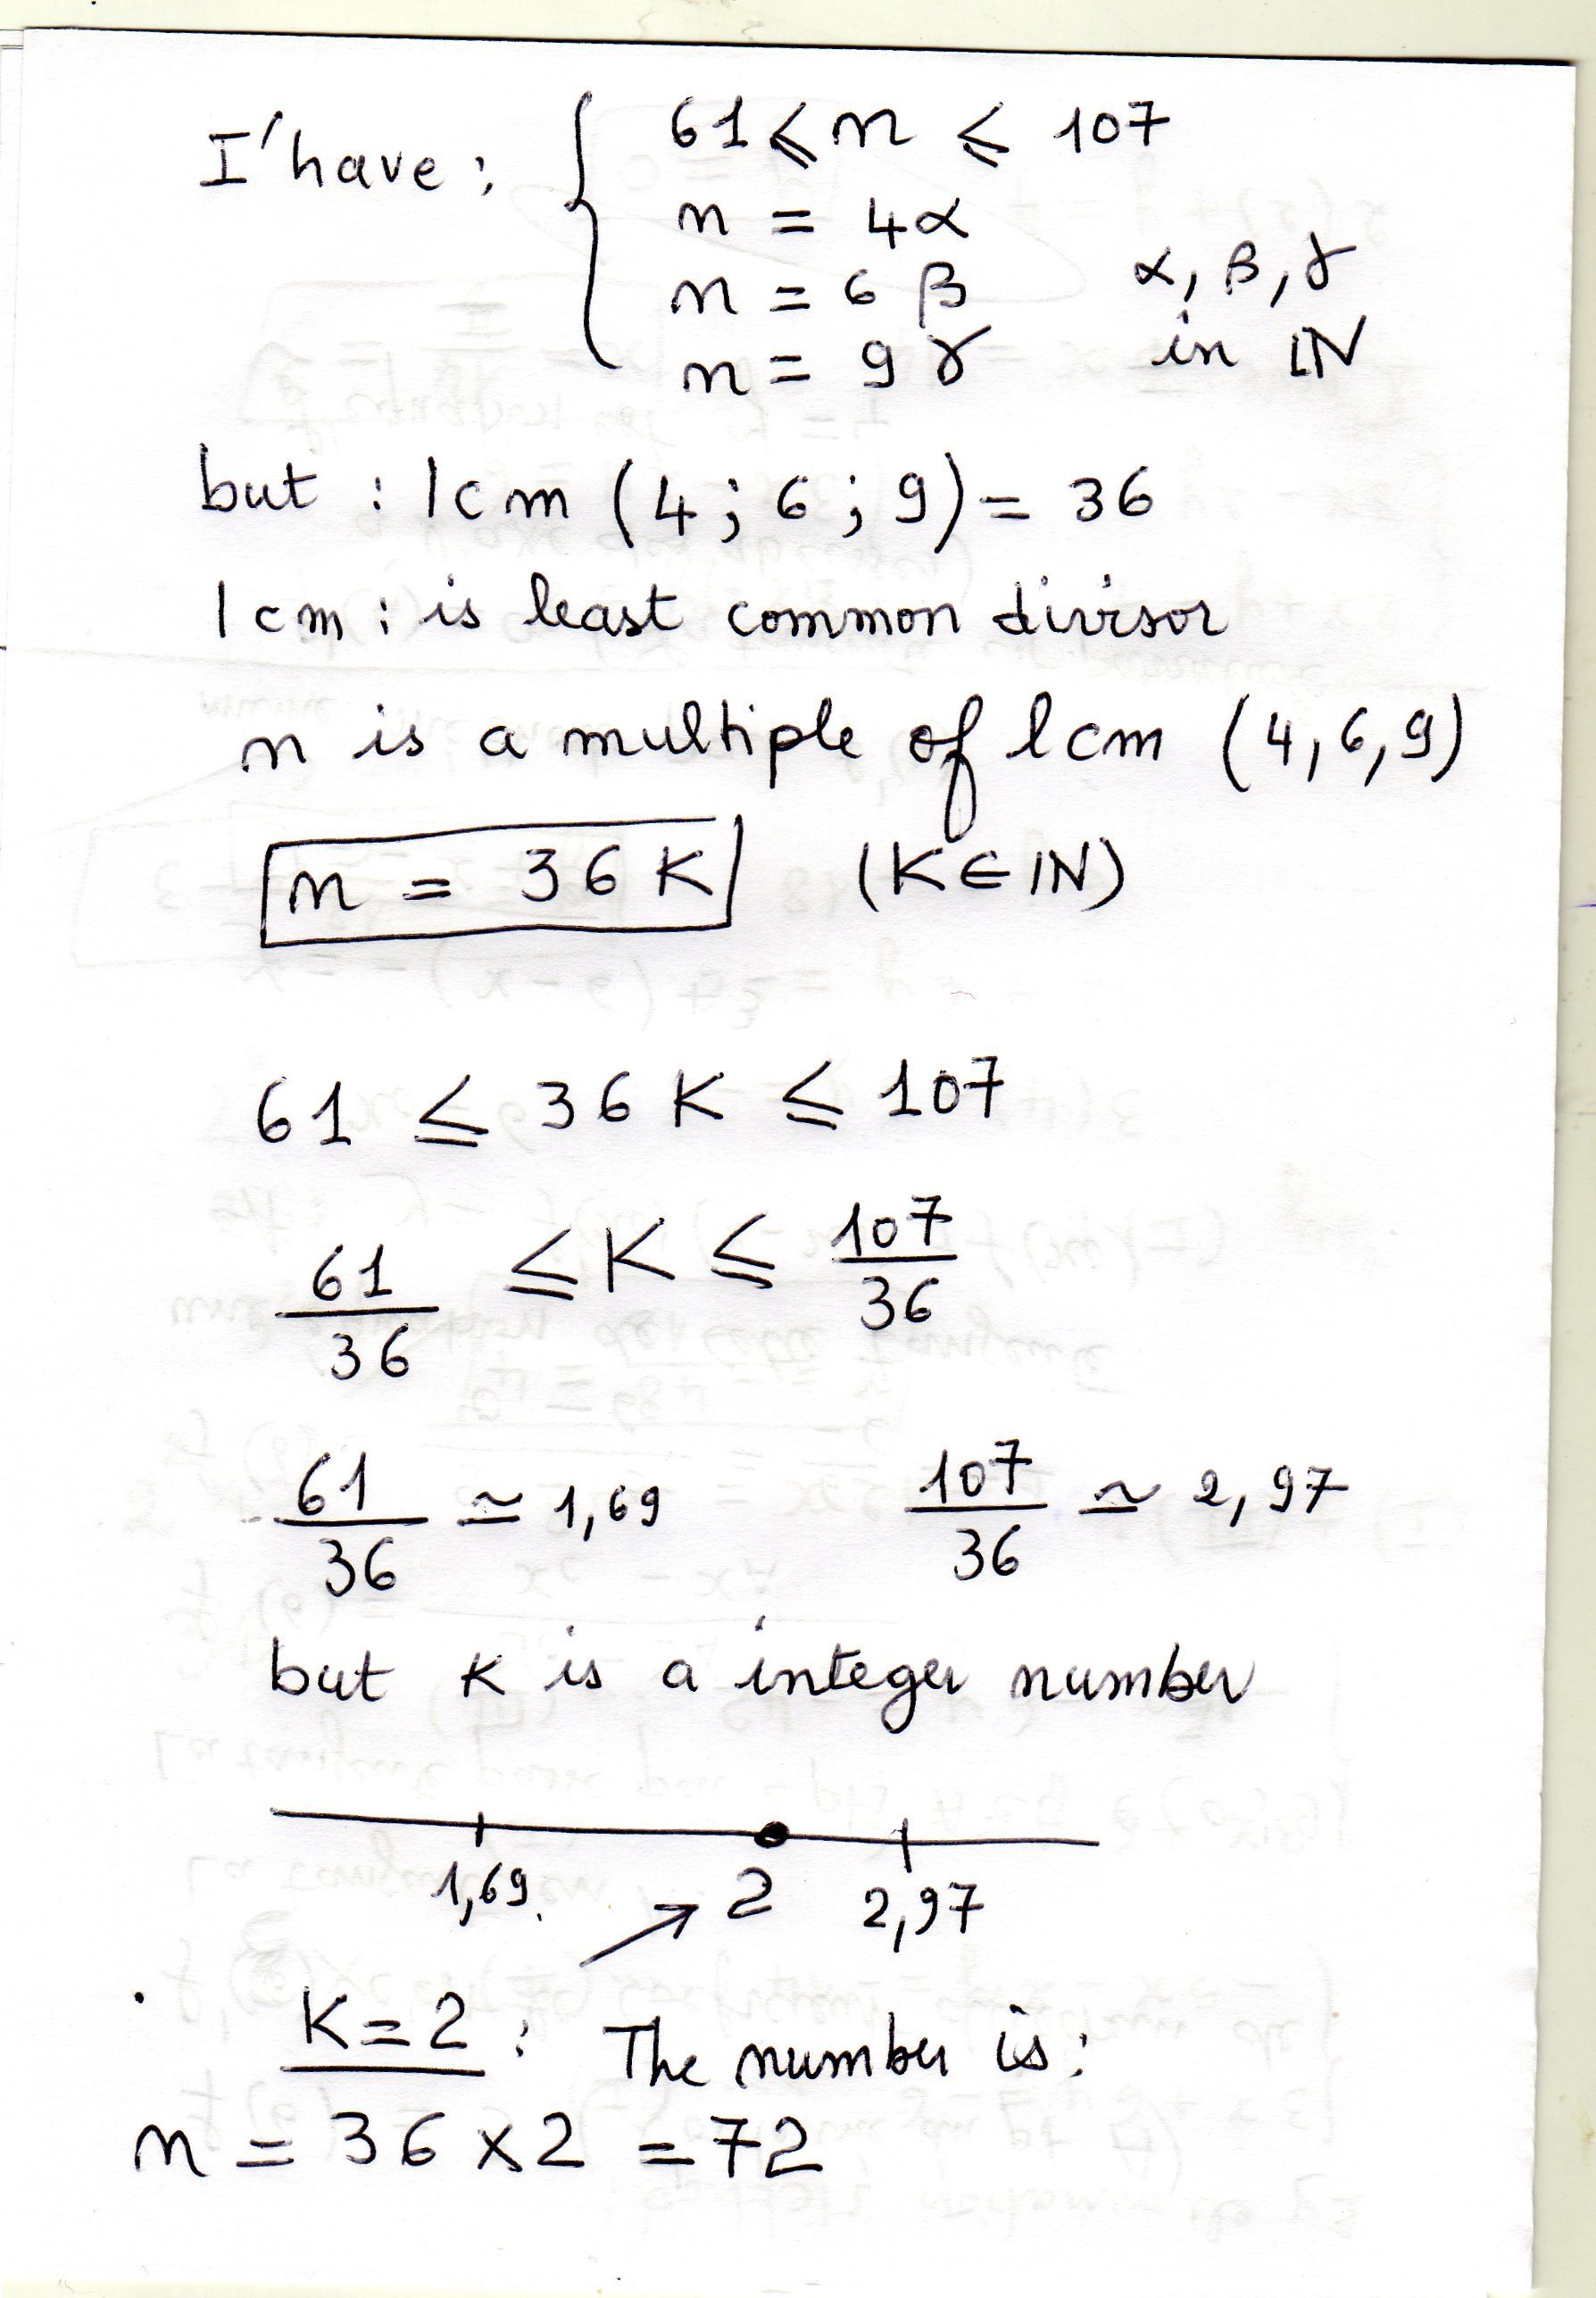 I'have : { 61 ⩽ n ⩽ 107
n = 4α
n = 6 β   α, β, γ
n = 9 γ   in IN
but : lcm (4 ; 6 ; 9) = 36
lcm : is least common divisor
n is a multiple of lcm (4, 6, 9)
n = 36 K   (K ∈ IN)
61 ≤ 36 K ≤ 107
61/36 ≤ K ≤ 107/36
61/36 ≃ 1,69   107/36 ≃ 2,97
but K is a integer number
1,69. → 2   2,97
K = 2 : The number is :
n = 36 × 2 = 72